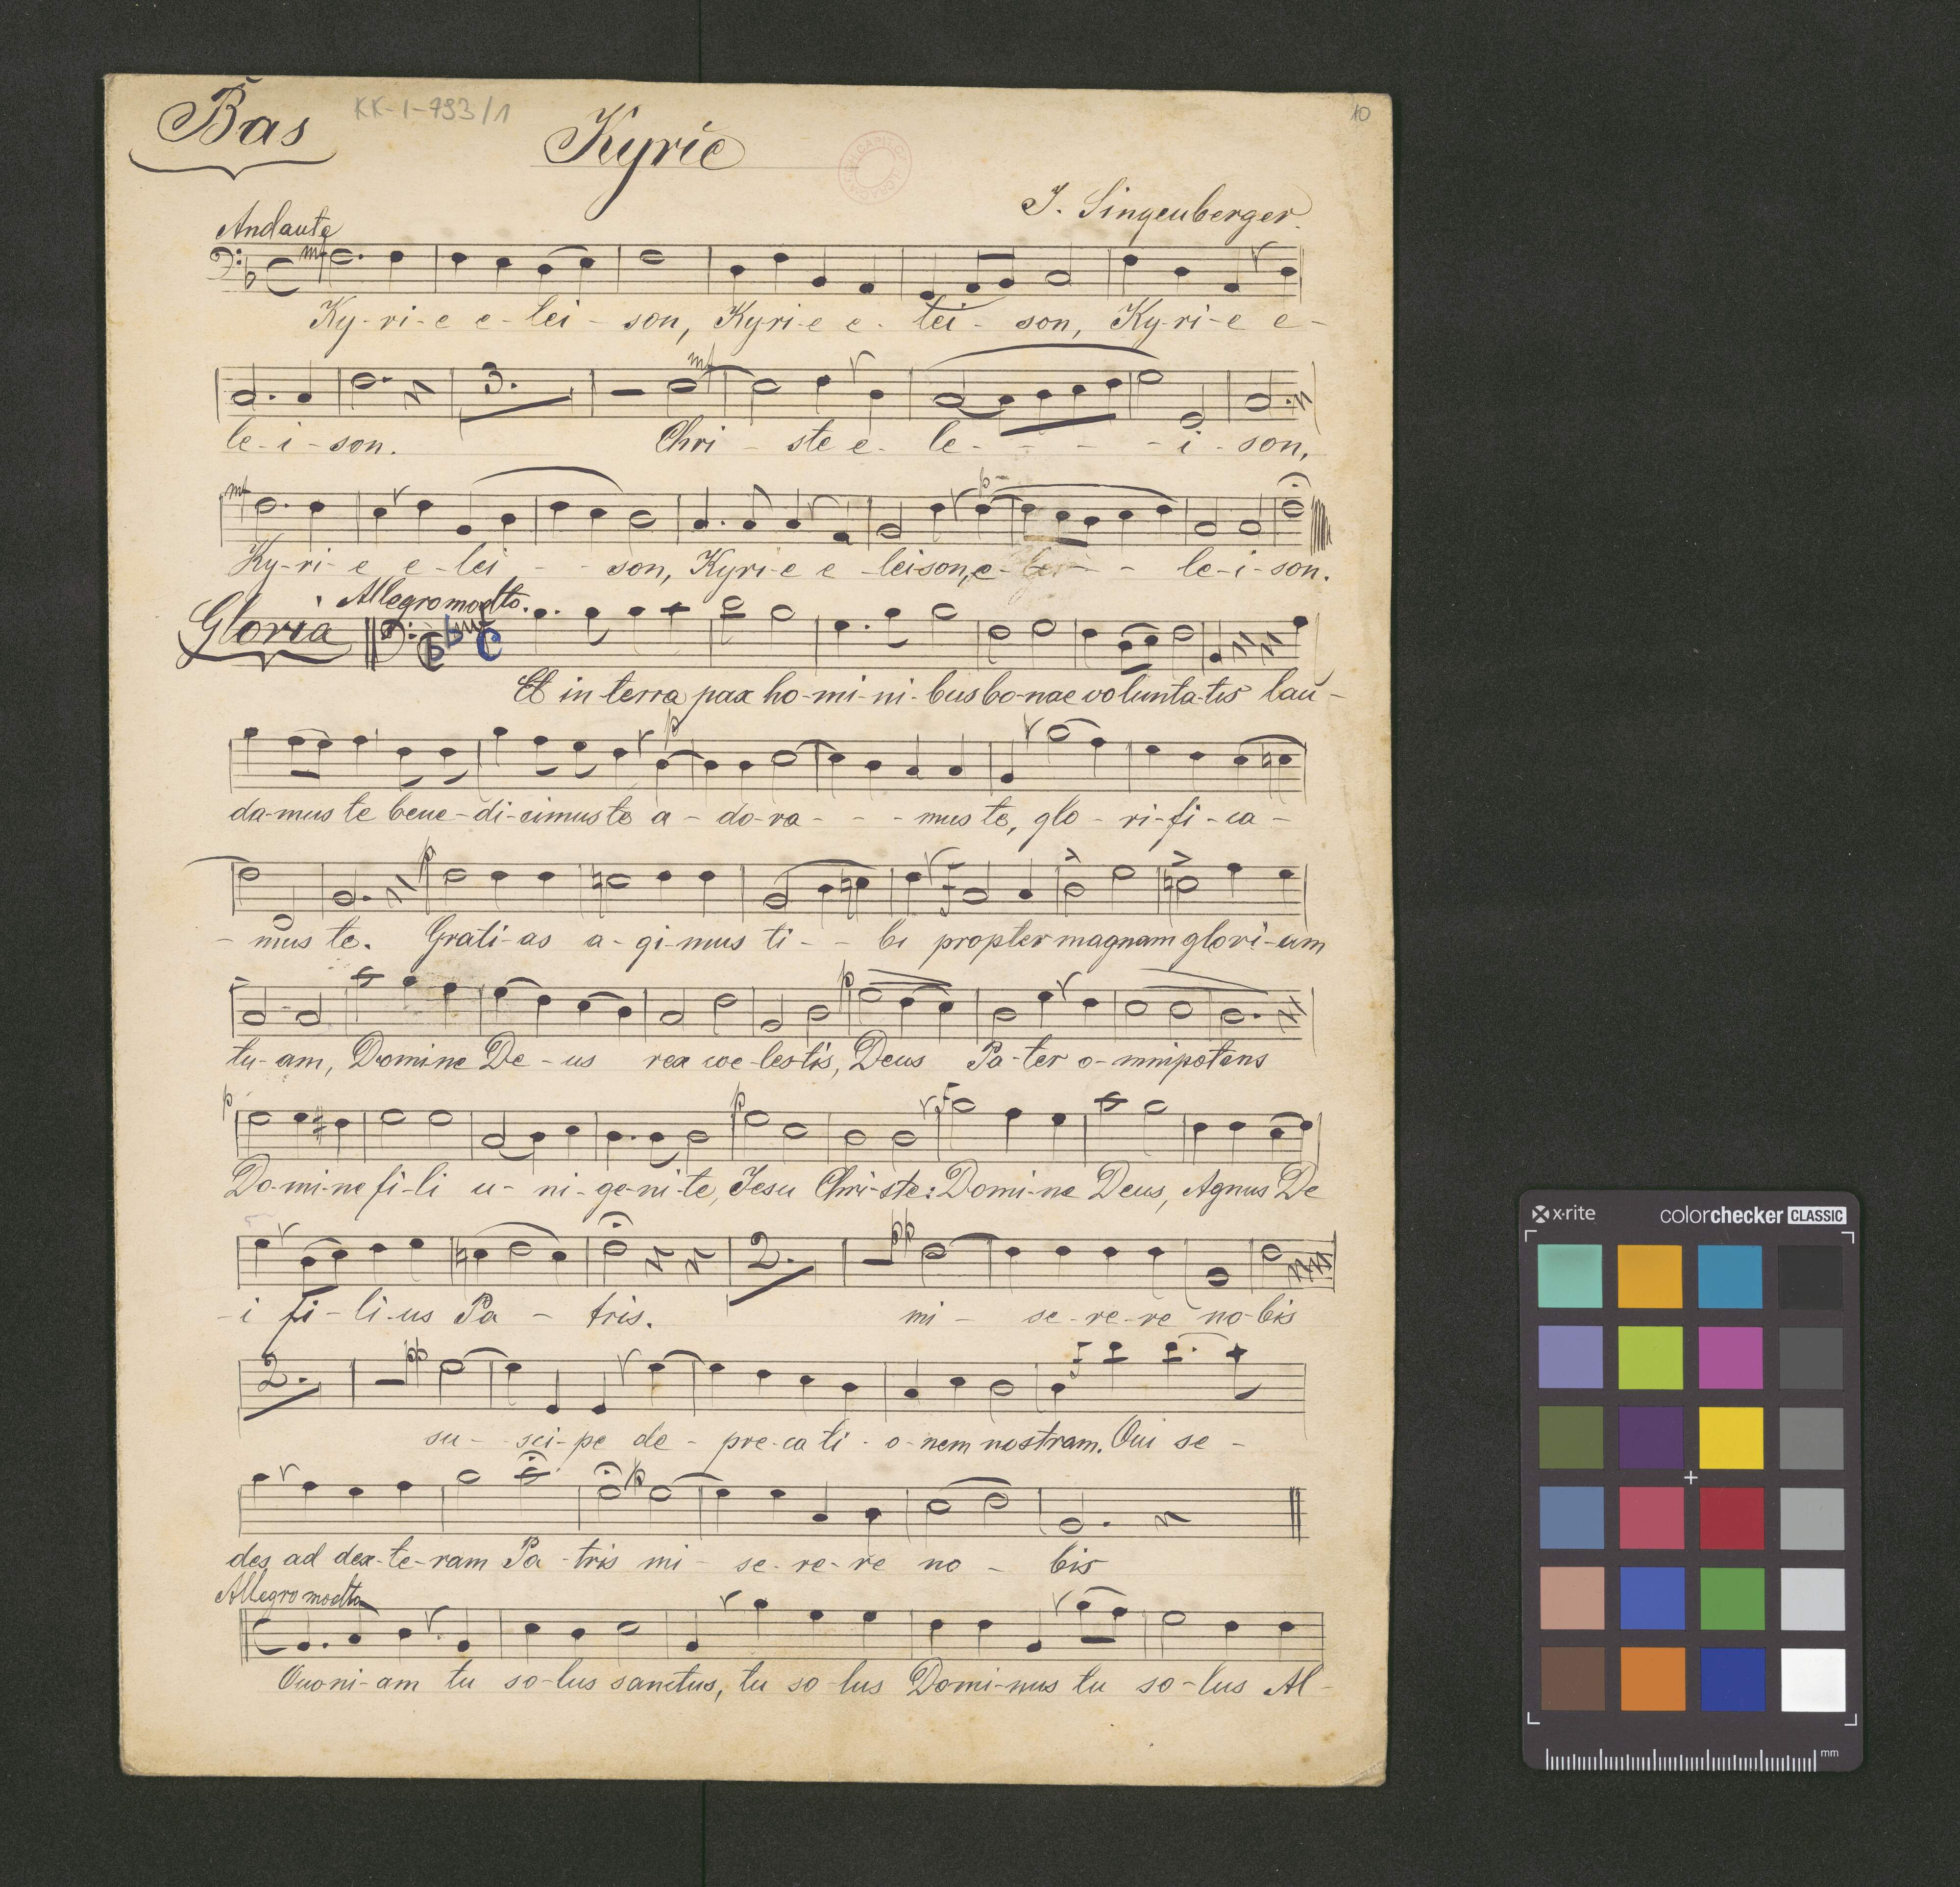 Bas KK-I-793/1 10
Kyrie
J. Singenberger.
Andante
mf
Ky-ri-e e-lei-son, Kyri-e e-lei-son, Ky-ri-e e-
3.
mf
le-i-son. Chri-ste e-le- - - - -i-son,
mf
p
Ky-ri-e e-lei- - son, Kyri-e e-leison, e- - - le-i-son.
Gloria Allegro modto. mf
Et in terra pax ho-mi-ni-bus bo-nae voluntatis lau-
p
da-mus te bene-di-cimus te a-do-ra- - - mus te, glo-ri-fi-ca-
p f
-mus te. Grati-as a-gi-mus ti- - bi propter magnam glori-am
p
tu-am, Domine De-us rex coe-lestis, Deus Pa-ter o-mnipotens
p p f
Do-mi-ne fi-li u-ni-ge-ni-te, Jesu Chri-ste: Domi-ne Deus, Agnus De
2. pp
-i fi-li-us Pa- tris. mi- se-re-re no-bis
2. pp f
su- sci-pe de-pre-ca ti-o-nem nostram. Qui se-
p
des ad dex-te-ram Pa-tris mi-se-re-re no- bis
Allegro modto
Quoni-am tu so-lus sanctus, tu so-lus Domi-nus tu so-lus Al-
x·rite colorchecker CLASSIC
mm